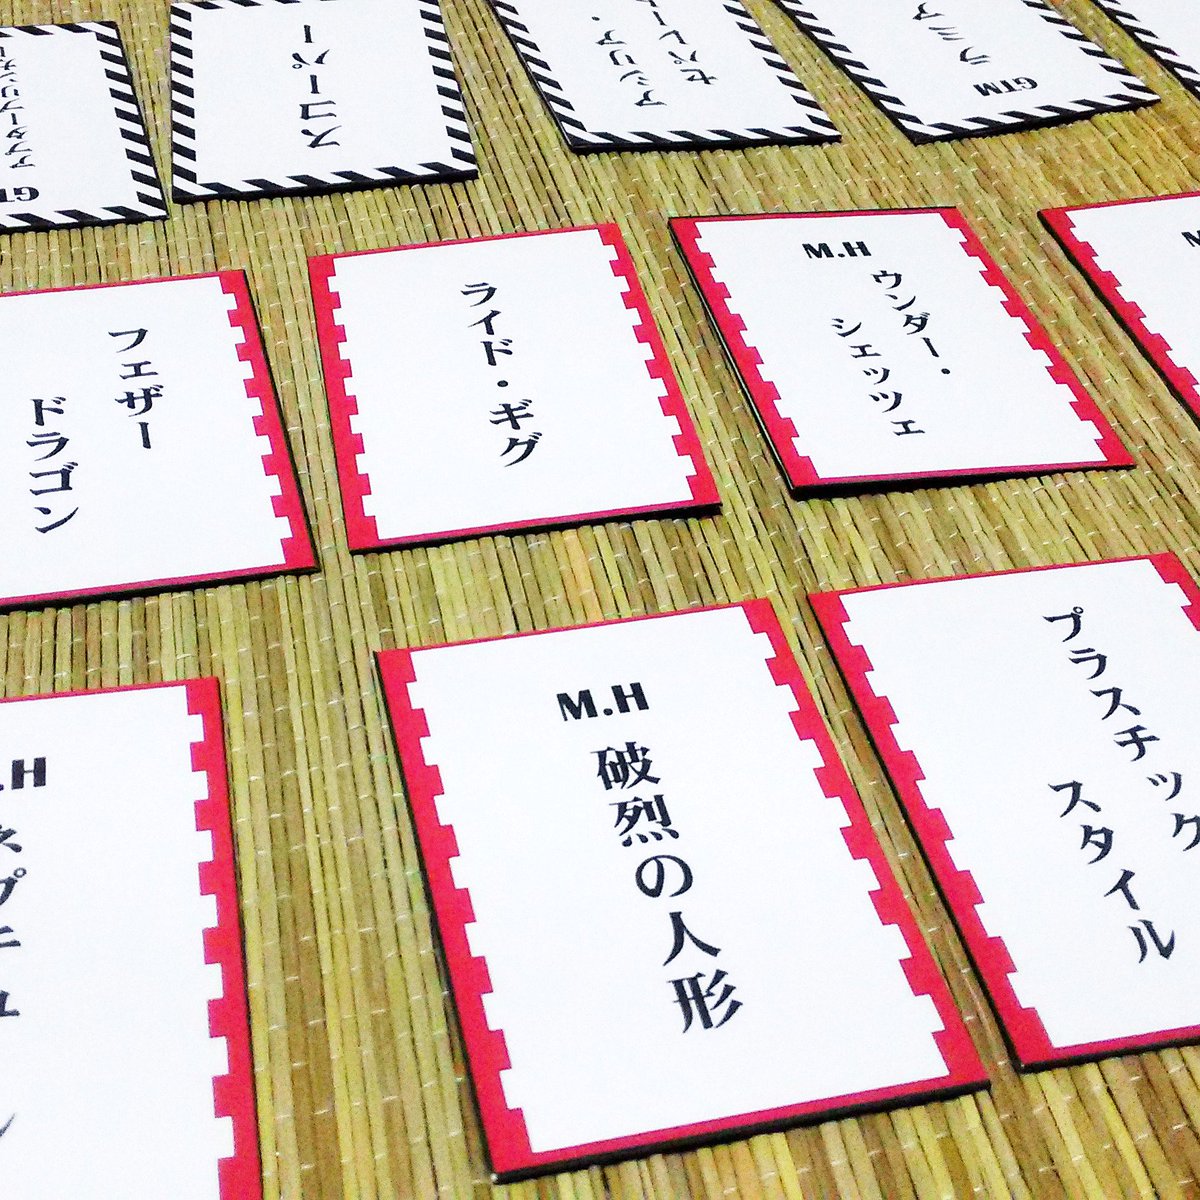 アフタープリンカー
GTM
スコーパー
アシリア・
セパレート
ラミア
GTM
フェザー
ドラゴン
ライド・ギグ
M.H
ウンダー・
シェッツェ
M.H
破烈の人形
プラスチック
スタイル